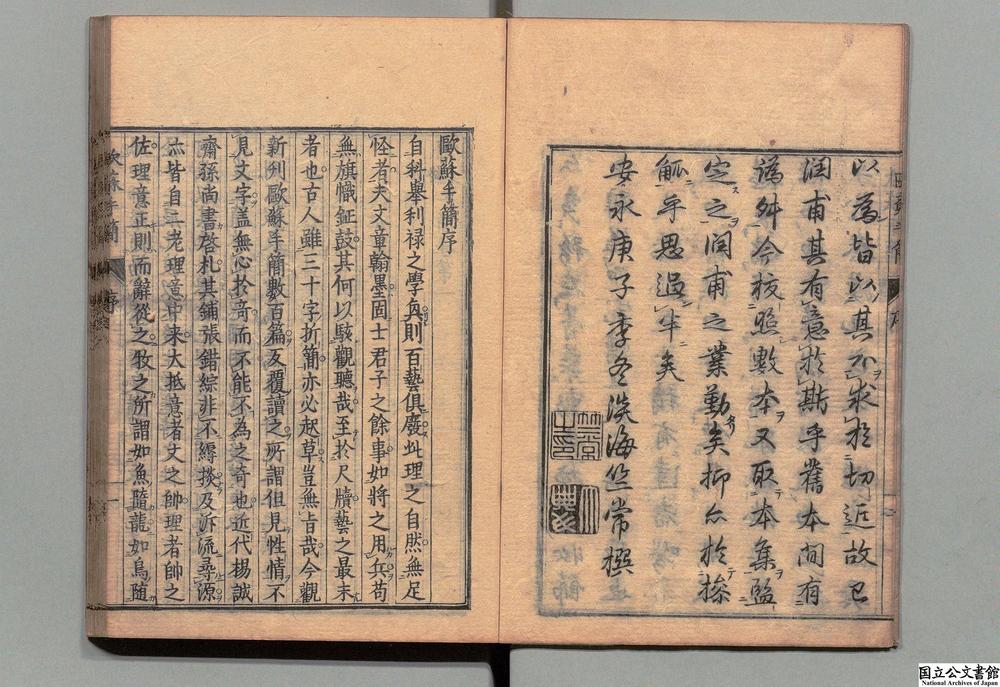 以為皆以其不求於切近故已
潤甫其有意於斯乎舊本間有
譌舛今校照數本又取本集監
定之潤甫之業勤矣抑亦於操
觚乎思過半矣
安永庚子季冬淡海竺常撰
歐蘇手簡序
自科舉利禄之學興則百藝俱廢此理之自然無足
怪者夫文章翰墨固士君子之餘事如將之用兵苟
無旗幟鉦鼓其何以駭觀聽哉至於尺牘藝之最末
者也古人雖三十字折簡亦必起草豈無旨哉今觀
新刋歐蘇手簡數百篇反覆讀之所謂但見性情不
見文字盖無心於竒而不能不為之竒也近代楊誠
齋孫尚書啓札其鋪張錯綜非不縟掞及泝流尋源
亦皆自二老理意中来大抵意者文之帥理者帥之
佐理意正則而辭從之牧之所謂如魚隨龍如鳥随
歐蘇手簡 序 一
国立公文書館
National Archives of Japan